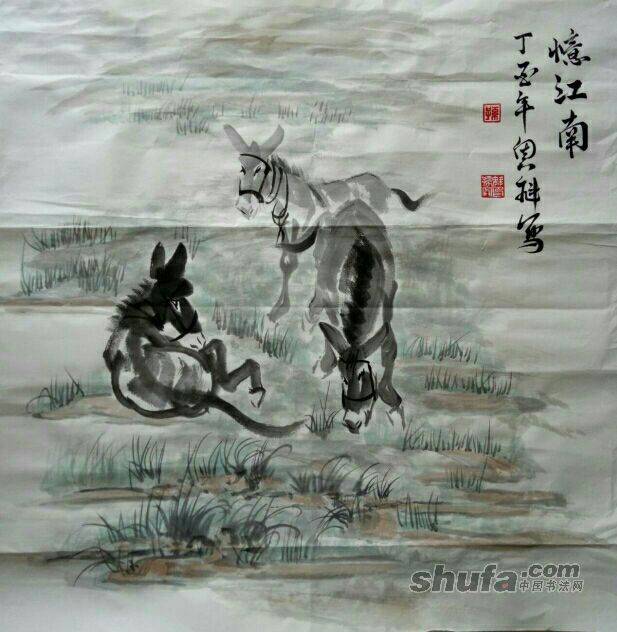 憶江南
丁酉年思科写
shufa.com
中国书法网